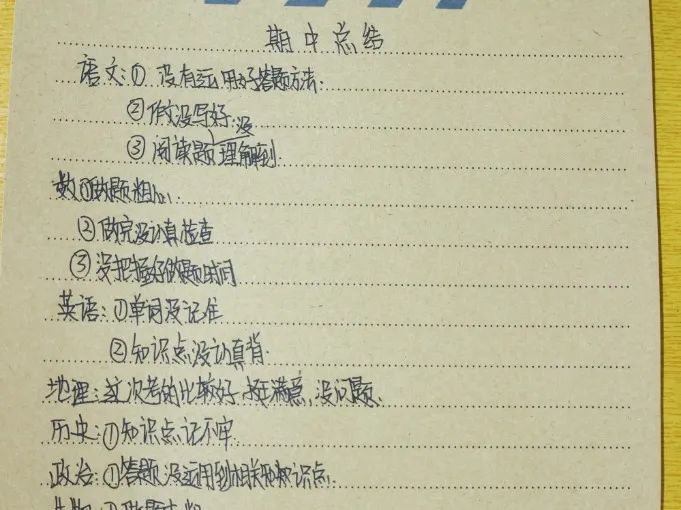 期中总结
语文:① 没有运用好答题方法.
② 作文没写好.
③ 阅读题没理解到.
数①做题粗心.
② 做完没认真检查
③ 没把握好做题时间
英语:①单词没记住
②知识点没认真背.
地理:这次考的比较好,挺满意,没问题.
历史:①知识点记不牢
政治:①答题没运用到相关知识点.